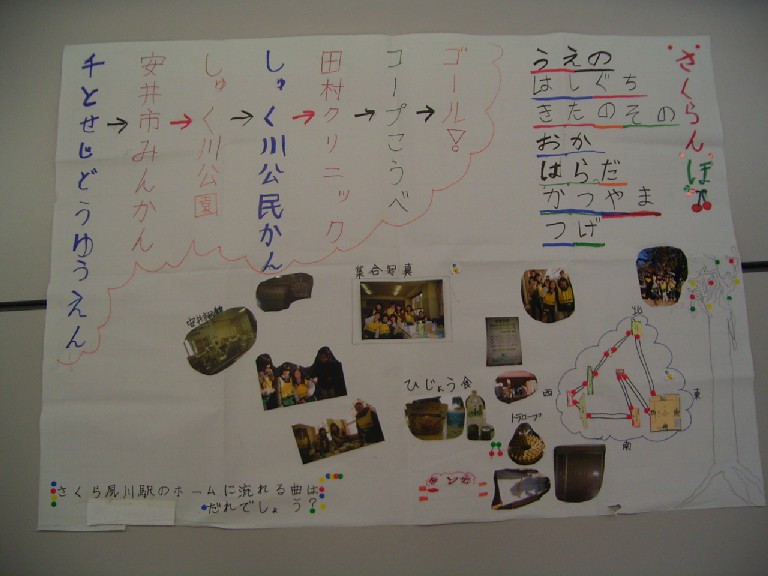 さくらんぼ
うえの
はしぐち
きたのその
おか
はらだ
かつやま
つげ
ゴール!
コープこうべ
田村クリニック
しゅく川公民かん
しゅく川公園
安井市みんかん
千とせじどうゆうえん
集合写真
ひじょう食
トランシーバ
タンカ
北
西
東
南
さくら夙川駅のホームに流れる曲は
だれでしょう?